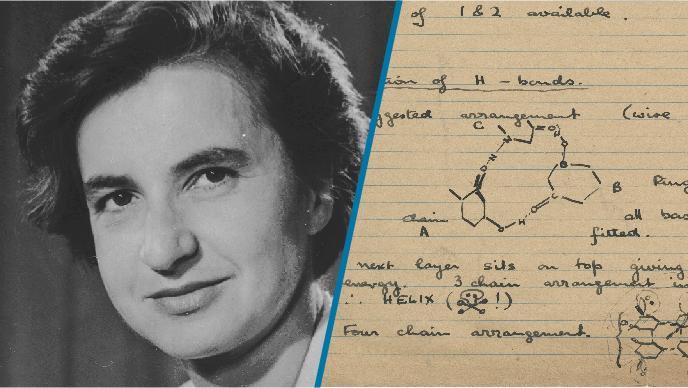 of 1 & 2 available.
of H - bonds.
arrangement (wise
C
N
N
O
H
B
Ring
chain
A
O
H
O
all bas
fitted.
next layer sits on top giving
energy. 3 chain arrangement in
∴ HELIX ( !)
Four chain arrangement.